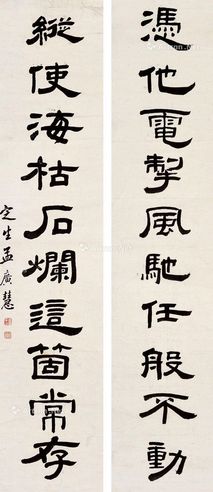 憑他電掣風馳任般不動
縱使海枯石爛這箇常存
定生孟廣慧